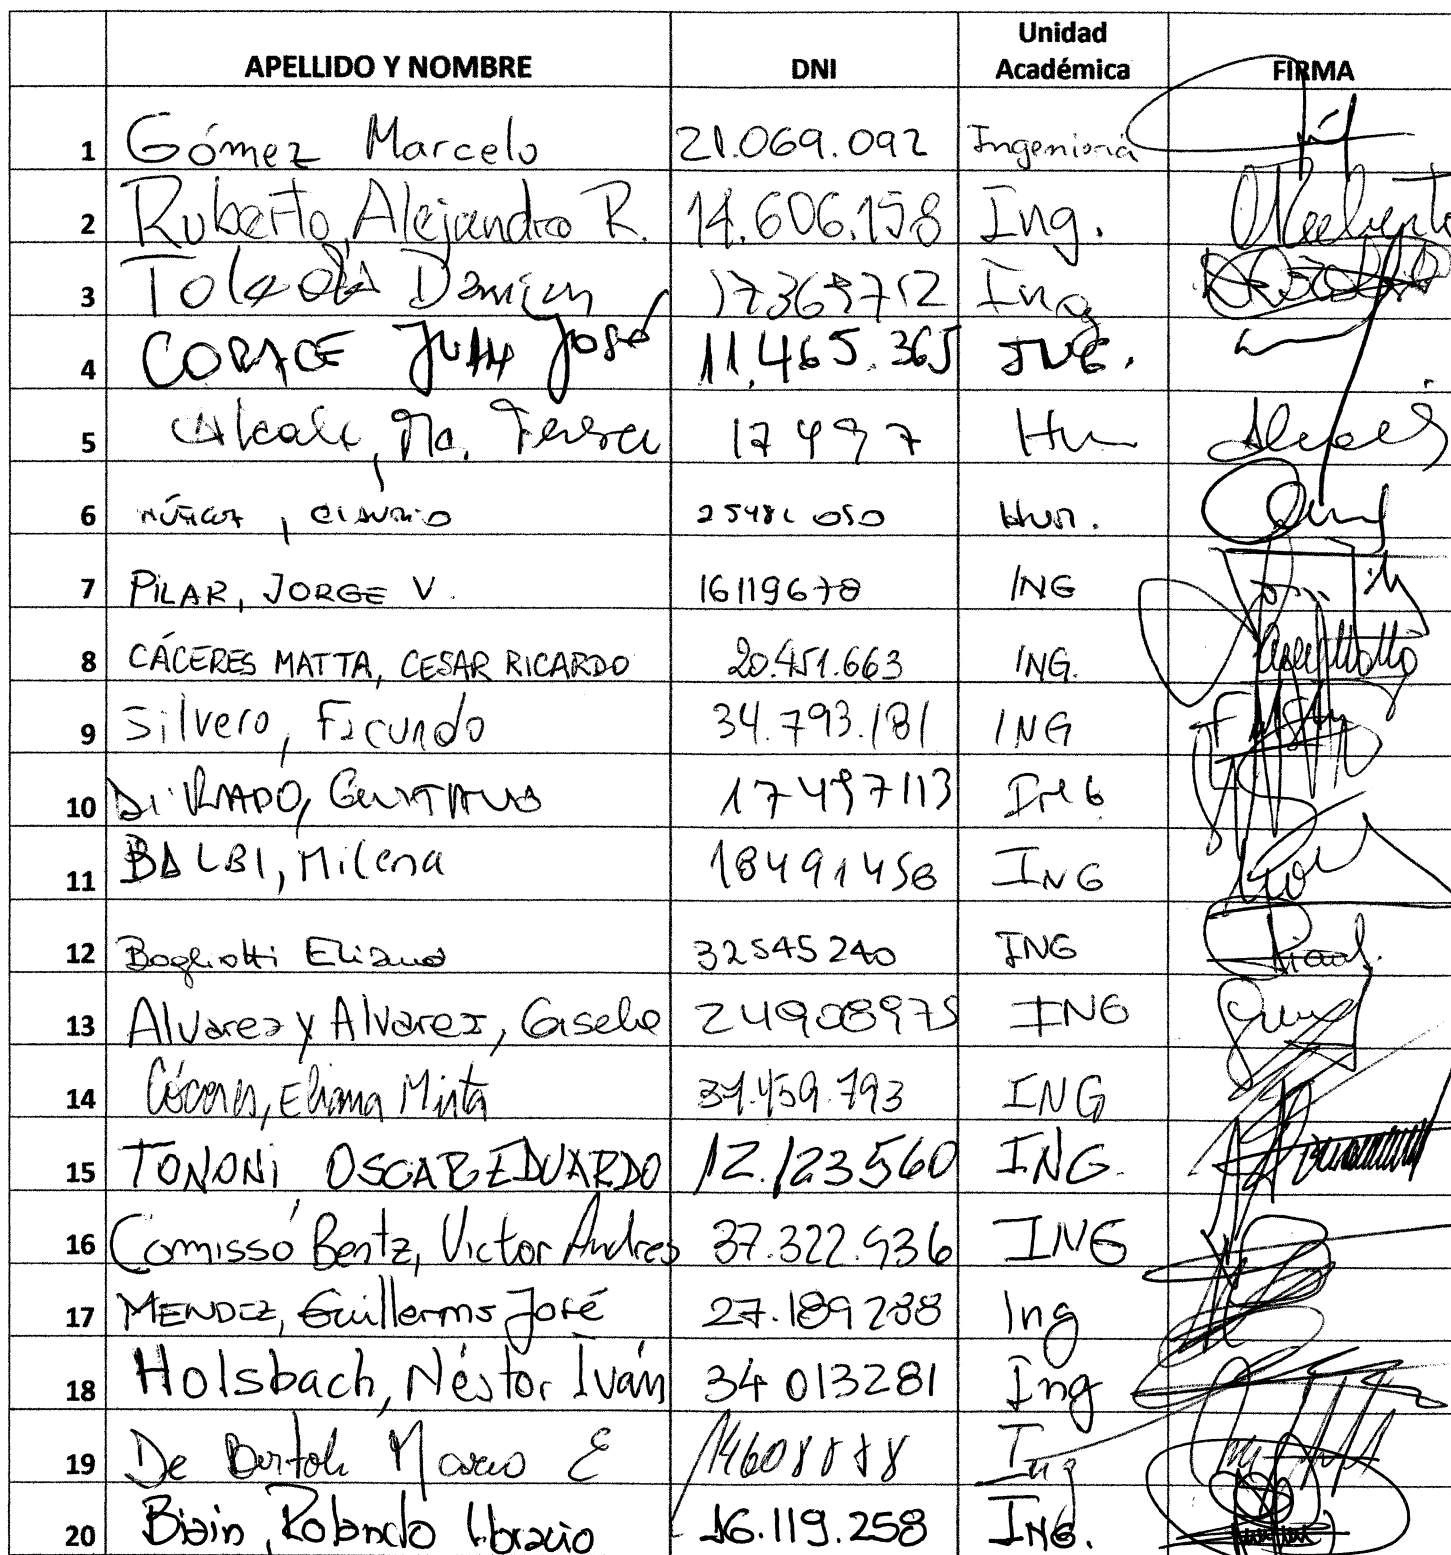 APELLIDO Y NOMBRE DNI Unidad Académica FIRMA
1 Gómez Marcelo 21.069.092 Ingeniería
2 Ruberto, Alejandro R. 14.606.158 Ing.
3 Toledo Damian 17369712 Ing
4 CORACE Juan José 11.465.365 ING.
5 Alcalá, Ma. Teresa 17497 Hum
6 NÚÑEZ, CLAUDIO 25481050 Hum.
7 PILAR, JORGE V. 16119678 ING
8 CÁCERES MATTA, CESAR RICARDO 20.451.663 ING.
9 Silvero, Facundo 34.793.181 ING
10 DI RADO, GUSTAVO 17497113 ING
11 BALBI, Milena 18491458 ING
12 Bogliotti Eliana 32545240 ING
13 Alvarez y Alvarez, Gisela 24908975 ING
14 Cáceres, Eliana Mirta 31.459.793 ING
15 TONONI OSCAR EDUARDO 12.123.560 ING.
16 Comissó Bentz, Victor Andres 37.322.936 ING
17 MENDEZ, Guillermo José 27.189288 Ing
18 Holsbach, Néstor Iván 34 013281 Ing
19 De Bortoli Mario E 14608888 Ing
20 Biain, Rolando Horacio 16.119.258 ING.